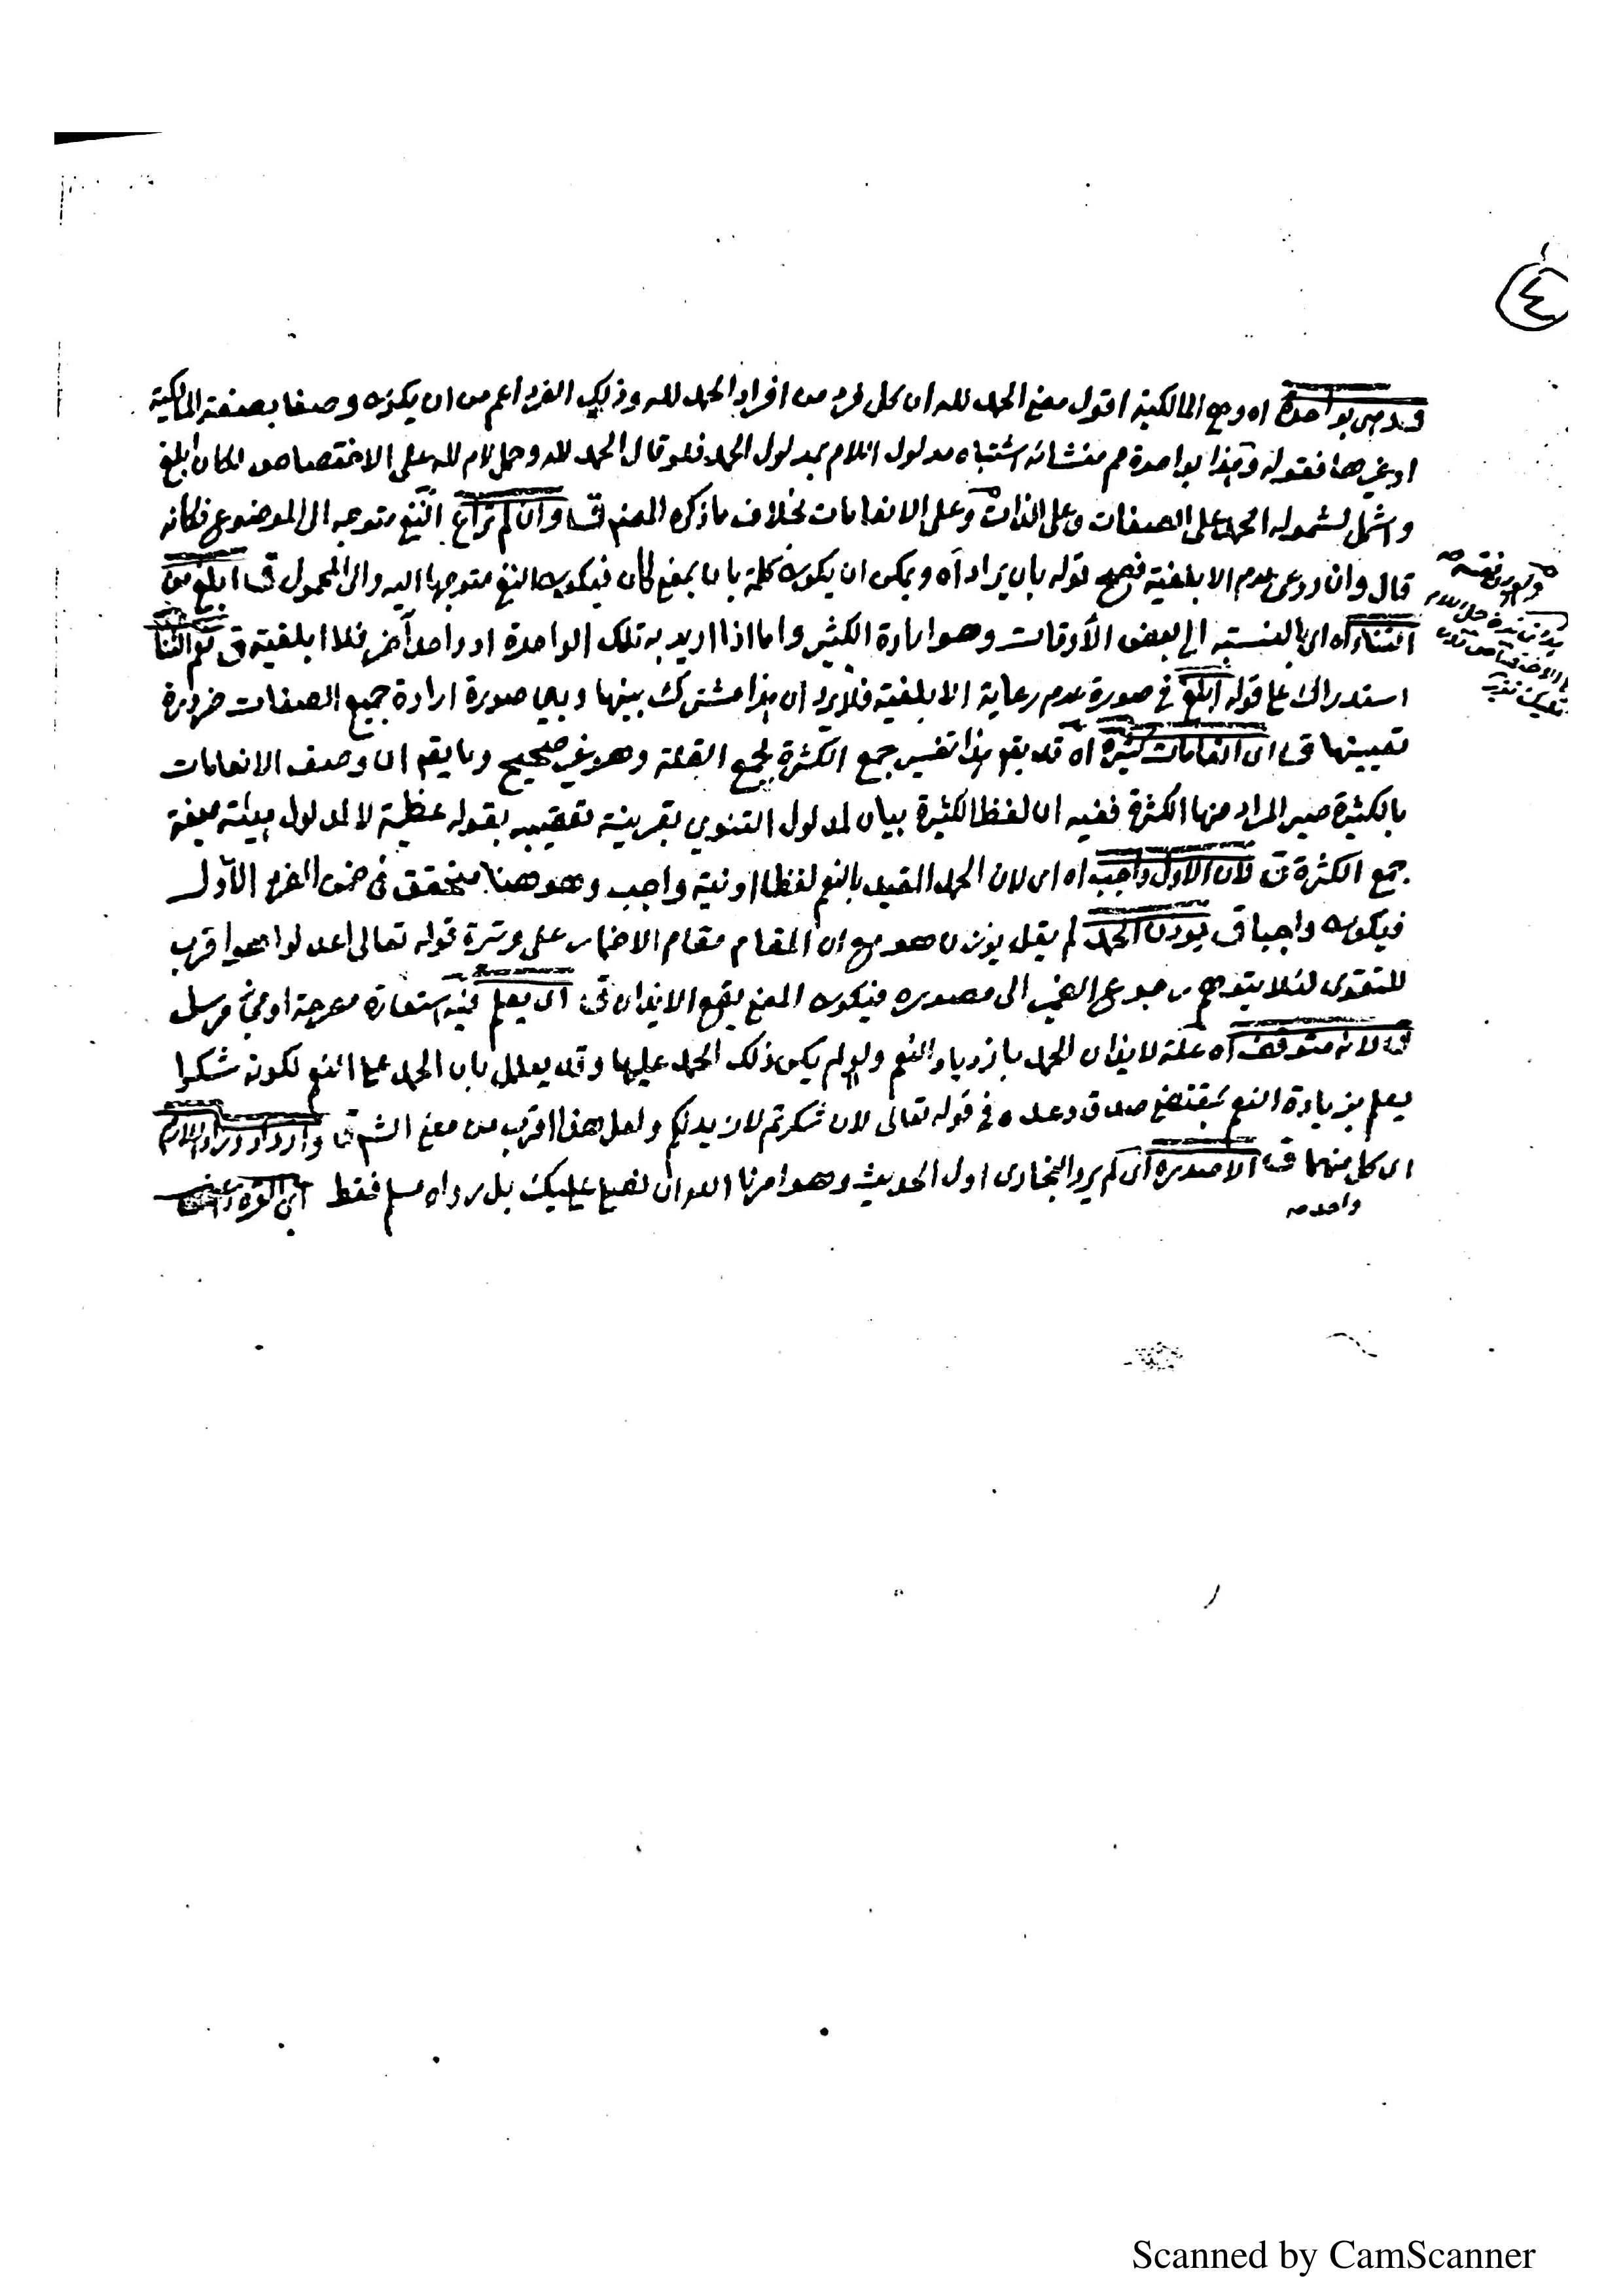 ٤
وهذا بواحدة اه وهي المالكية اقول معنى الحمد لله ان كل فرد من افراد الحمد لله وذلك الفرد اعم من ان يكون وصفا بصفة المالكية
او غيرها فقوله وهذا بواحدة مم منشائه اشتباه مدلول اللام بمدلول الحمد فلو قال الحمد لله وحمل لام لله على الاختصاص لكان ابلغ
واشمل لشموله الحمد على الصفات وعلى الذات وعلى الانعامات بخلاف ما ذكره المصنف ق وان لم تراع النفي متوجه الى الموضوع فكانه
قال وان روعي عدم الابلغية فصح قوله بان يراد اه ويمكن ان يكون كلمة بان بمعنى كأن فيكون النفي متوجها اليه والى المحمول ق ابلغ من
الثناء اه اي بالنسبة الى بعض الأوقات وهو ارادة الكثير واما اذا اريد به تلك الواحدة او واحد آخر فلا ابلغية ق نعم الثناء
استدراك عا قوله ابلغ في صورة عدم رعاية الابلغية فلا يرد ان هذا مشترك بينها وبين صورة ارادة جميع الصفات ضرورة
تعيينها ق اي انعامات كثيرة اه قد يقم هذا تفسير جمع الكثرة بجمع القلة وهو غير صحيح وما يقم ان وصف الانعامات
بالكثيرة صير المراد منها الكثرة ففيه ان لفظ الكثيرة بيان لمدلول التنوين بقرينة تعقيبه بقوله عظيمة لا لمدلول هيئة صيغة
جمع الكثرة ق لان الاول واجب اه اي لان الحمد المقيد بالنعم لفظا او نية واجب وهو هنا متحقق في ضمن الفرد الأول
فيكون واجبا ق يؤذن الحمد لم يقل يؤذن هو مع ان المقام مقام الاضمار على وتيرة قوله تعالى اعدلوا هو اقرب
للتقوى لئلا يتوهم رجوع الضمير الى مصدره فيكون المعنى يقع الايذان ق اي يعلم فيه استعارة مصرحة او مجاز مرسل
ق لانه متوقف اه علة لايذان الحمد بازدياد النعم ولو لم يكن ذلك الحمد عليها وقد يعلل بان الحمد على النعم لكونه شكرا
يعلم بزيادة النعم بمقتضى صدق وعده في قوله تعالى لان شكرتم لازيدنكم ولعل هذا اقرب من معنى الشم ق وازداد وزاد اللازم
اي كل منهما ق الا صدره اي لم يرو البخاري اول الحديث وهو امرنا الله ان نصلي عليك بل رواه مسلم فقط
واحد صه
Scanned by CamScanner